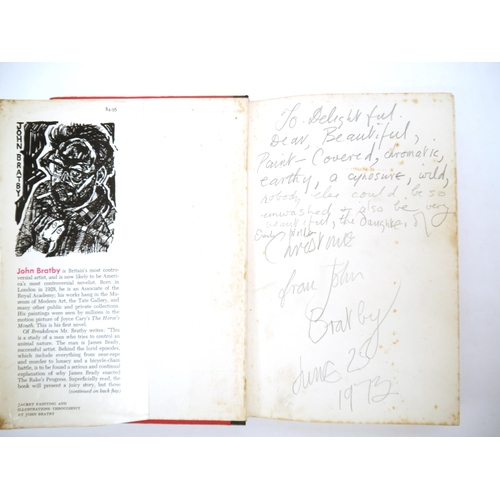 $4.95
JOHN BRATBY
John Bratby is Britain's most contro-
versial artist, and is now likely to be Ameri-
ca's most controversial novelist. Born in
London in 1928, he is an Associate of the
Royal Academy; his works hang in the Mu-
seum of Modern Art, the Tate Gallery, and
many other public and private collections.
His paintings were seen by millions in the
motion picture of Joyce Cary's The Horse's
Mouth. This is his first novel.
Of Breakdown Mr. Bratby writes: "This
is a study of a man who tries to control an
animal nature. The man is James Brady,
successful artist. Behind the lurid episodes,
which include everything from near-rape
and murder to lunacy and a bicycle-chain
battle, is to be found a serious and continual
explanation of why James Brady enacted
The Rake's Progress. Superficially read, the
book will present a juicy story, but those
(continued on back flap)
JACKET PAINTING AND
ILLUSTRATIONS THROUGHOUT
BY JOHN BRATBY
To Delightful.
Dear, Beautiful,
Paint-Covered, chromatic,
earthy, a cynosure, wild,
nobody else could be so
unwashed & also be very
beautiful, the Daughter of
Christ
from John
Bratby
June 28
1973